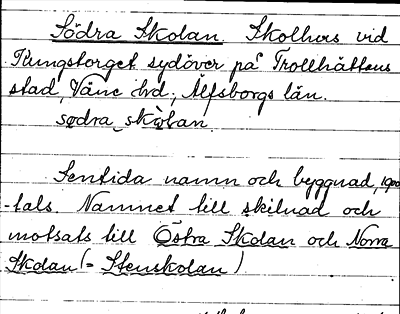 Södra Skolan. Skolhus vid
Kungstorget sydöver på Trollhättans
stad, Väne hd; Älfsborgs län.
södra skolan.
Sentida namn och byggnad, 1900
-tals. Namnet till skilnad och
motsats till Östra Skolan och Norra
Skolan (= Stenskolan)